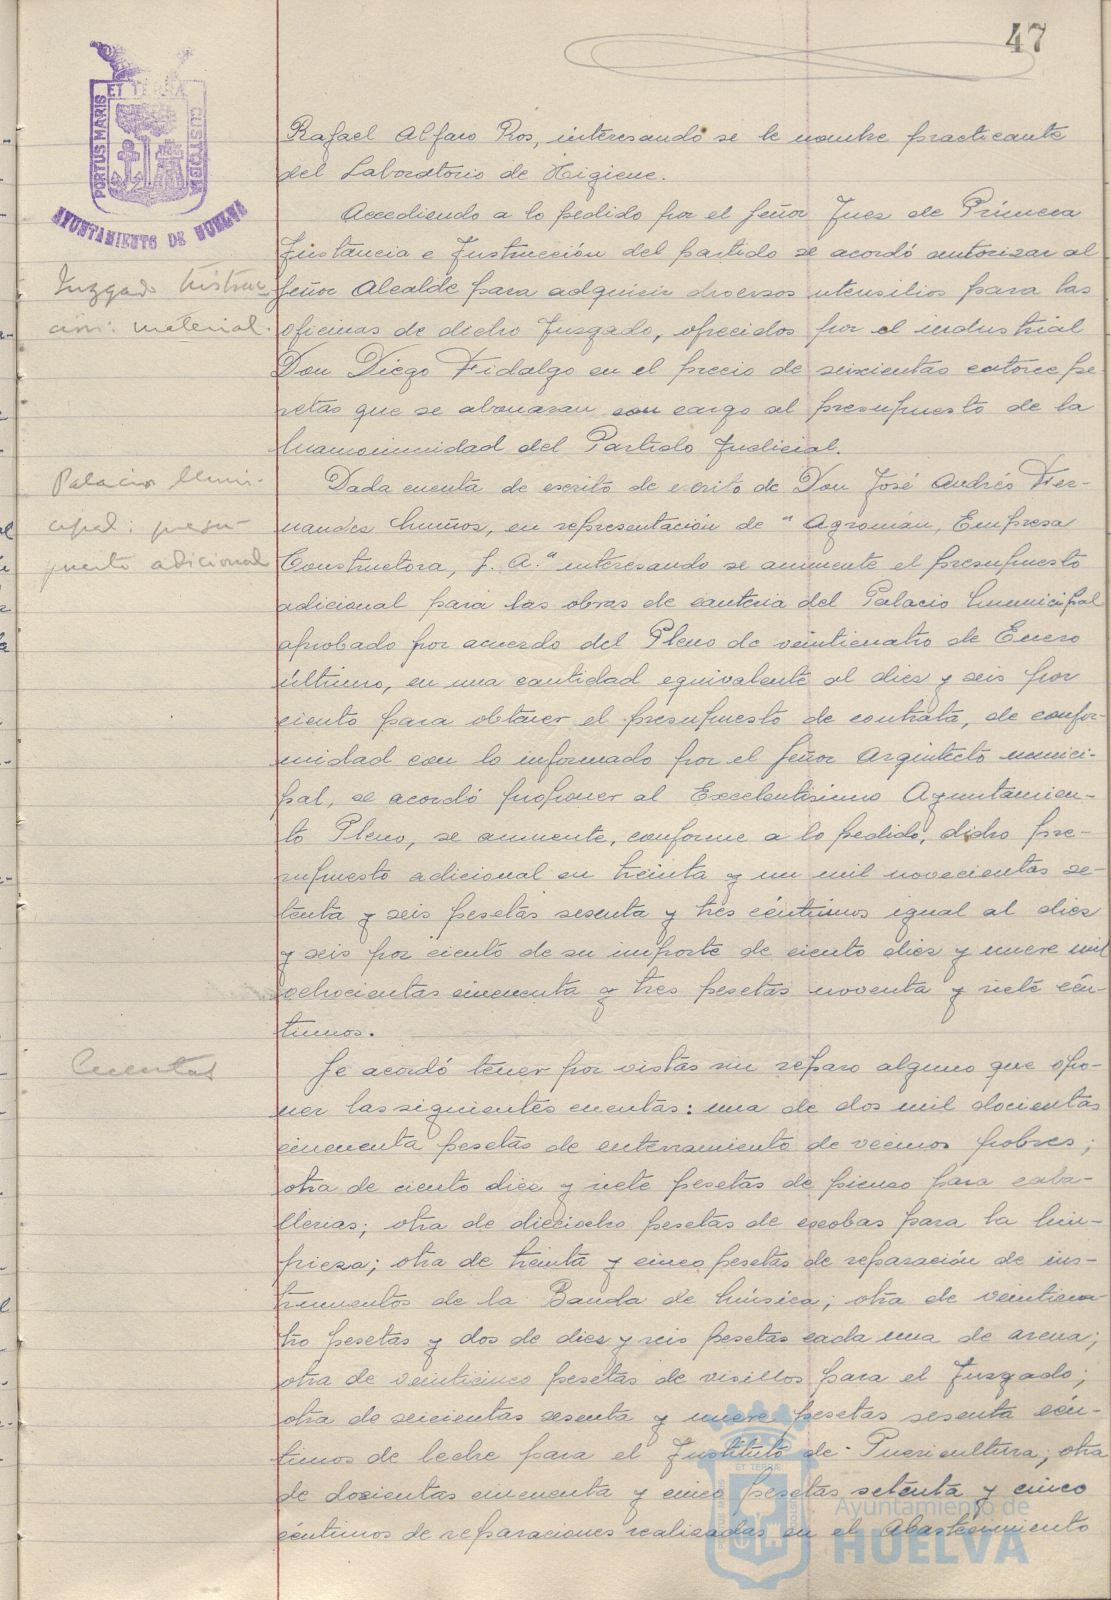 47
PORTUS MARIS ET TERRÆ CUSTODIA
AYUNTAMIENTO DE HUELVA
Rafael Alfaro Ros, interesando se le nombre practicante
del Laboratorio de Higiene.
Juzgado Instruc-
ción: material.
Accediendo a lo pedido por el Señor Juez de Primera
Instancia e Instrucción del partido se acordó autorizar al
Señor Alcalde para adquirir diversos utensilios para las
oficinas de dicho Juzgado, ofrecidos por el industrial
Don Diego Fidalgo en el precio de seiscientas catorce pe-
setas que se abonaran con cargo al presupuesto de la
Mancomunidad del Partido Judicial.
Palacio Muni-
cipal: presu-
puesto adicional
Dada cuenta de escrito de escrito de Don José Andrés Fer-
nandez Muños, en representación de "Agromán, Empresa
Constructora, S. A." interesando se aumente el presupuesto
adicional para las obras de canteria del Palacio Municipal
aprobado por acuerdo del Pleno de veinticuatro de Enero
último, en una cantidad equivalente al diez y seis por
ciento para obtener el presupuesto de contrata, de confor-
midad con lo informado por el Señor Arquitecto munici-
pal, se acordó proponer al Excelentisimo Ayuntamien-
to Pleno, se aumente, conforme a lo pedido, dicho pre-
supuesto adicional en treinta y un mil novecientas se-
tenta y seis pesetas sesenta y tres céntimos igual al diez
y seis por ciento de su importe de ciento diez y nueve mil
ochocientas cincuenta y tres pesetas noventa y siete cén-
timos.
Cuentas
Se acordó tener por vistas sin reparo alguno que opo-
ner las siguientes cuentas: una de dos mil docientas
cincuenta pesetas de enterramiento de vecinos pobres;
otra de ciento diez y siete pesetas de pienso para caba-
llerias; otra de dieciocho pesetas de escobas para la lim-
pieza; otra de treinta y cinco pesetas de reparación de ins-
trumentos de la Banda de Música; otra de veinticua-
tro pesetas y dos de diez y seis pesetas cada una de arena;
otra de veinticinco pesetas de visillos para el Juzgado;
otra de seicientas sesenta y nueve pesetas sesenta cén-
timos de leche para el Instituto de Puericultura; otra
de docientas cincuenta y cinco pesetas setenta y cinco
céntimos de reparaciones realizadas en el Abastecimiento
Ayuntamiento de
HUELVA